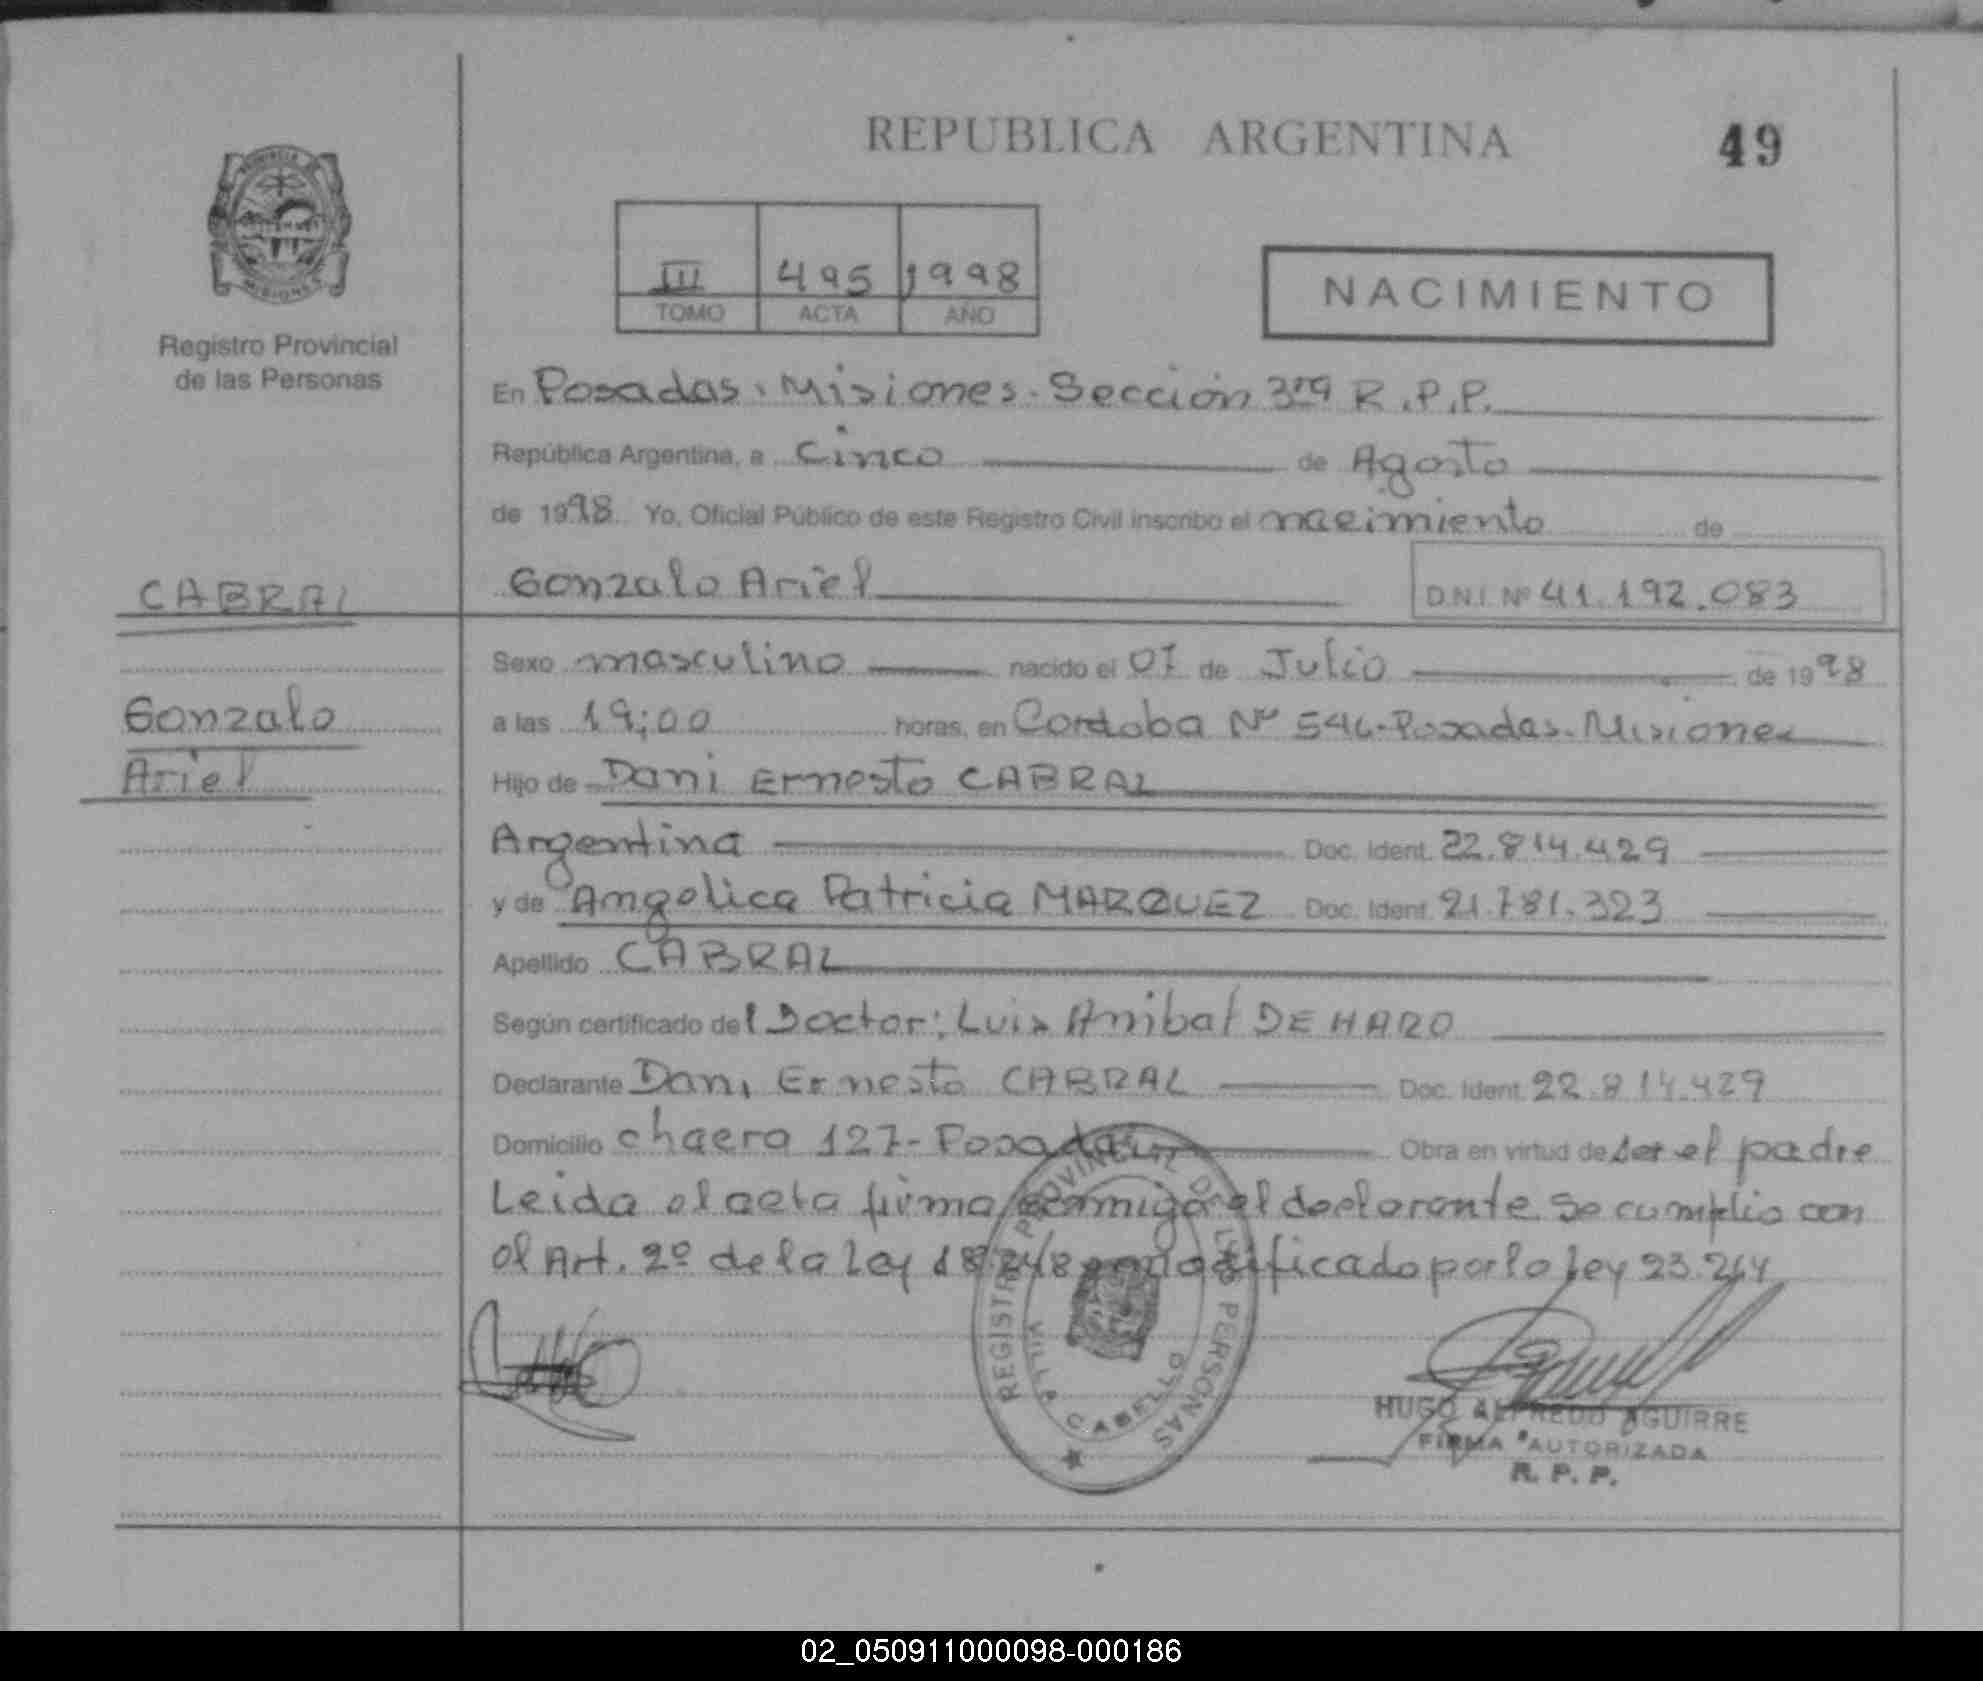 REPUBLICA ARGENTINA
49
PROVINCIA DE MISIONES
Registro Provincial
de las Personas
III 495 1998
TOMO ACTA AÑO
NACIMIENTO
En Posadas. Misiones. Sección 3ra R.P.P.
República Argentina, a Cinco de Agosto
de 1998. Yo, Oficial Público de este Registro Civil inscribo el nacimiento de
CABRAL
Gonzalo Ariel D.N.I. Nº 41.192.083
Sexo masculino nacido el 07 de Julio de 1998
Gonzalo
a las 19:00 horas, en Cordoba Nº 546-Posadas-Misiones
Ariel
Hijo de Dani Ernesto CABRAL
Argentina Doc. Ident. 22.814.429
y de Angelica Patricia MARQUEZ Doc. Ident. 21.781.323
Apellido CABRAL
Según certificado del Doctor: Luis Anibal DE HARO
Declarante Dani Ernesto CABRAL Doc. Ident. 22.814.429
Domicilio chacra 127- Posadas Obra en virtud de ser el padre
Leida el acta firma conmigo el declarante se cumplio con
el Art. 2º de la Ley 18.248 modificado por la Ley 23.264
REGISTRO PROVINCIAL DE LAS PERSONAS
VILLA CABELLO
HUGO ALFREDO AGUIRRE
FIRMA AUTORIZADA
R. P. P.
02_050911000098-000186